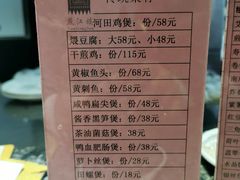 河田鸡煲：份/58元
煨豆腐：大58元、小48元
干煎鸡：份/115元
黄椒鱼头：份/68元
黄刺鱼：份/58元
咸鸭扁尖煲：份/58元
酱香黑笋煲：份/38元
茶油菌菇煲：38元
鸭血肥肠煲：份/38元
萝卜丝煲：份/28元
田螺煲：份/18元